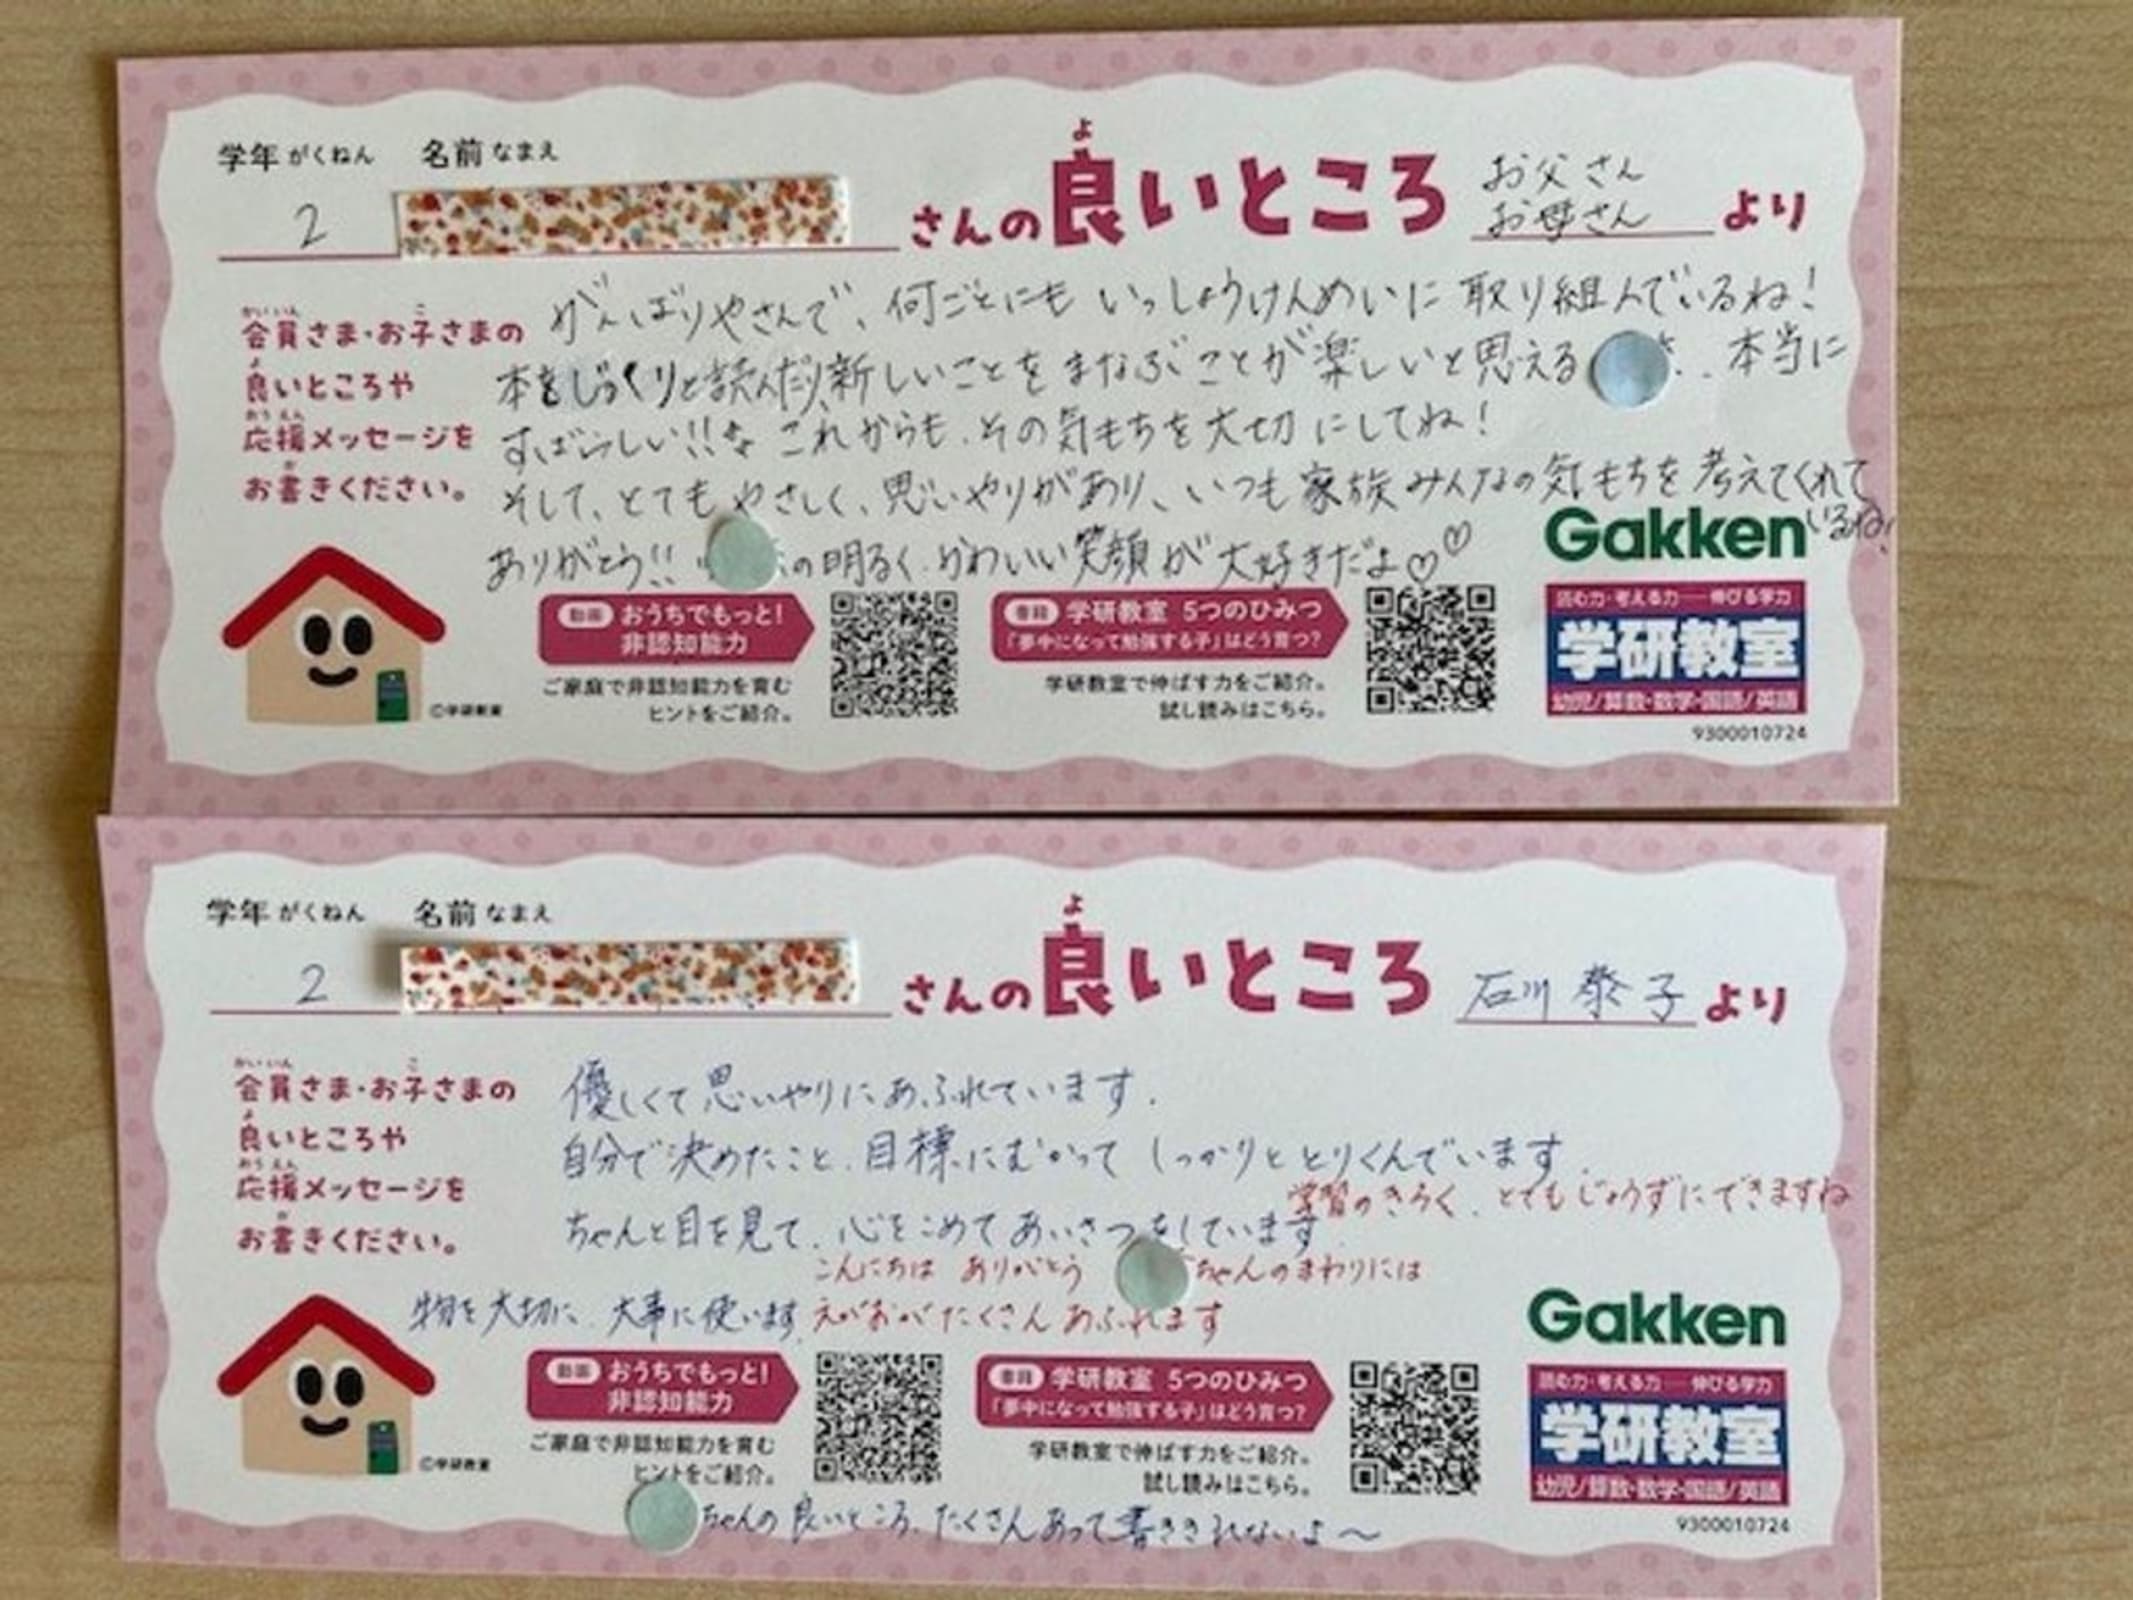 学年 がくねん 名前 なまえ
2
さんの良いところ
よ
お父さん
お母さん
より
会員さま・お子さまの
かいいん こ
良いところや
よ
応援メッセージを
おうえん
お書きください。
か
がんばりやさんで、何ごとにもいっしょうけんめいに取り組んでいるね!
本をじっくりと読んだり、新しいことをまなぶことが楽しいと思える 本当に
すばらしい!! これからも、その気もちを大切にしてね!
そして、とてもやさしく、思いやりがあり、いつも家族みんなの気もちを考えてくれて
いるね!
ありがとう!! の明るく、かわいい笑顔が大好きだよ♡♡
©学研教室
動画 おうちでもっと!
非認知能力
ご家庭で非認知能力を育む
ヒントをご紹介。
書籍 学研教室 5つのひみつ
「夢中になって勉強する子」はどう育つ?
学研教室で伸ばす力をご紹介。
試し読みはこちら。
Gakken
読む力・考える力──伸びる学力
学研教室
幼児/算数・数学・国語/英語
9300010724
学年 がくねん 名前 なまえ
2
さんの良いところ
よ
石川 泰子
より
会員さま・お子さまの
かいいん こ
良いところや
よ
応援メッセージを
おうえん
お書きください。
か
優しくて思いやりにあふれています.
自分で決めたこと、目標にむかってしっかりととりくんでいます.
学習のきろく、とてもじょうずにできますね
ちゃんと目を見て、心をこめてあいさつをしています.
こんにちは ありがとう ちゃんのまわりには
物を大切に、大事に使います. えがおがたくさんあふれます
©学研教室
動画 おうちでもっと!
非認知能力
ご家庭で非認知能力を育む
ヒントをご紹介。
書籍 学研教室 5つのひみつ
「夢中になって勉強する子」はどう育つ?
学研教室で伸ばす力をご紹介。
試し読みはこちら。
Gakken
読む力・考える力──伸びる学力
学研教室
幼児/算数・数学・国語/英語
9300010724
ちゃんの良いところ、たくさんあって書ききれないよ〜